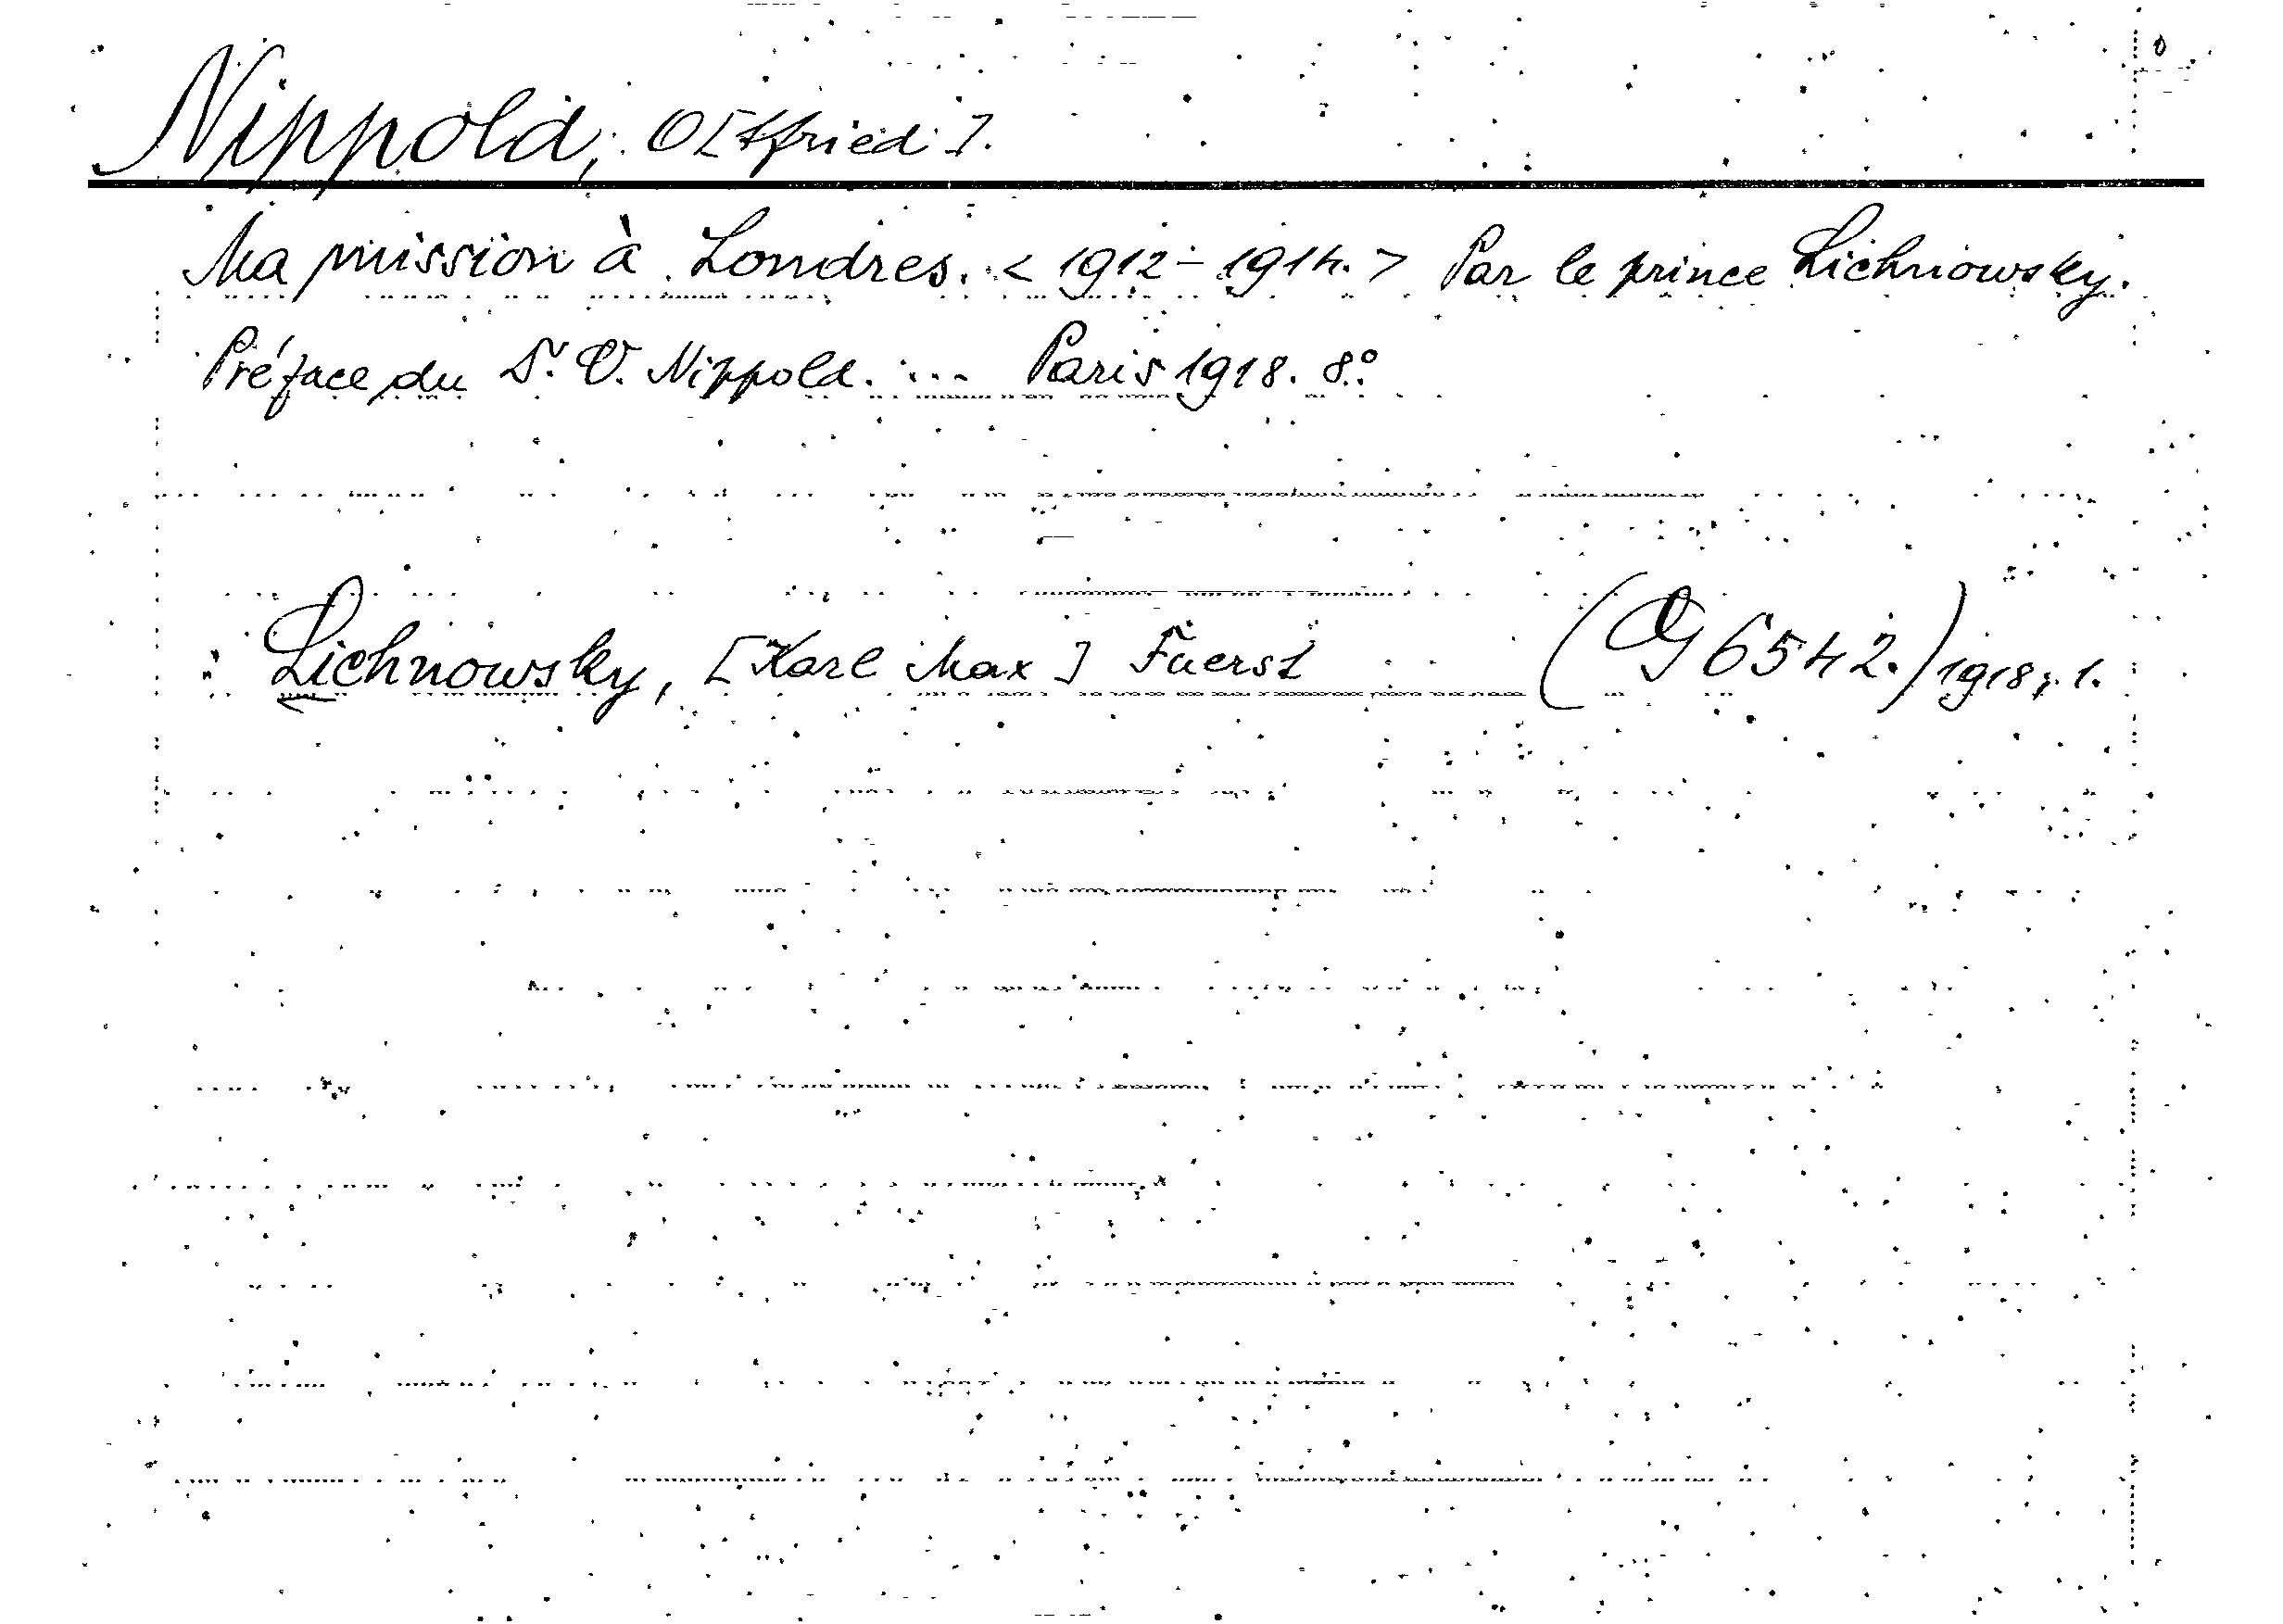 Nippold, O[tfried].
Ma mission à Londres. < 1912-1914. > Par le prince Lichnowsky.
Préface du Dr. O. Nippold. ... Paris 1918. 8°
: Lichnowsky, [Karl Max] Fuerst (Og 6542.) 1918,1.